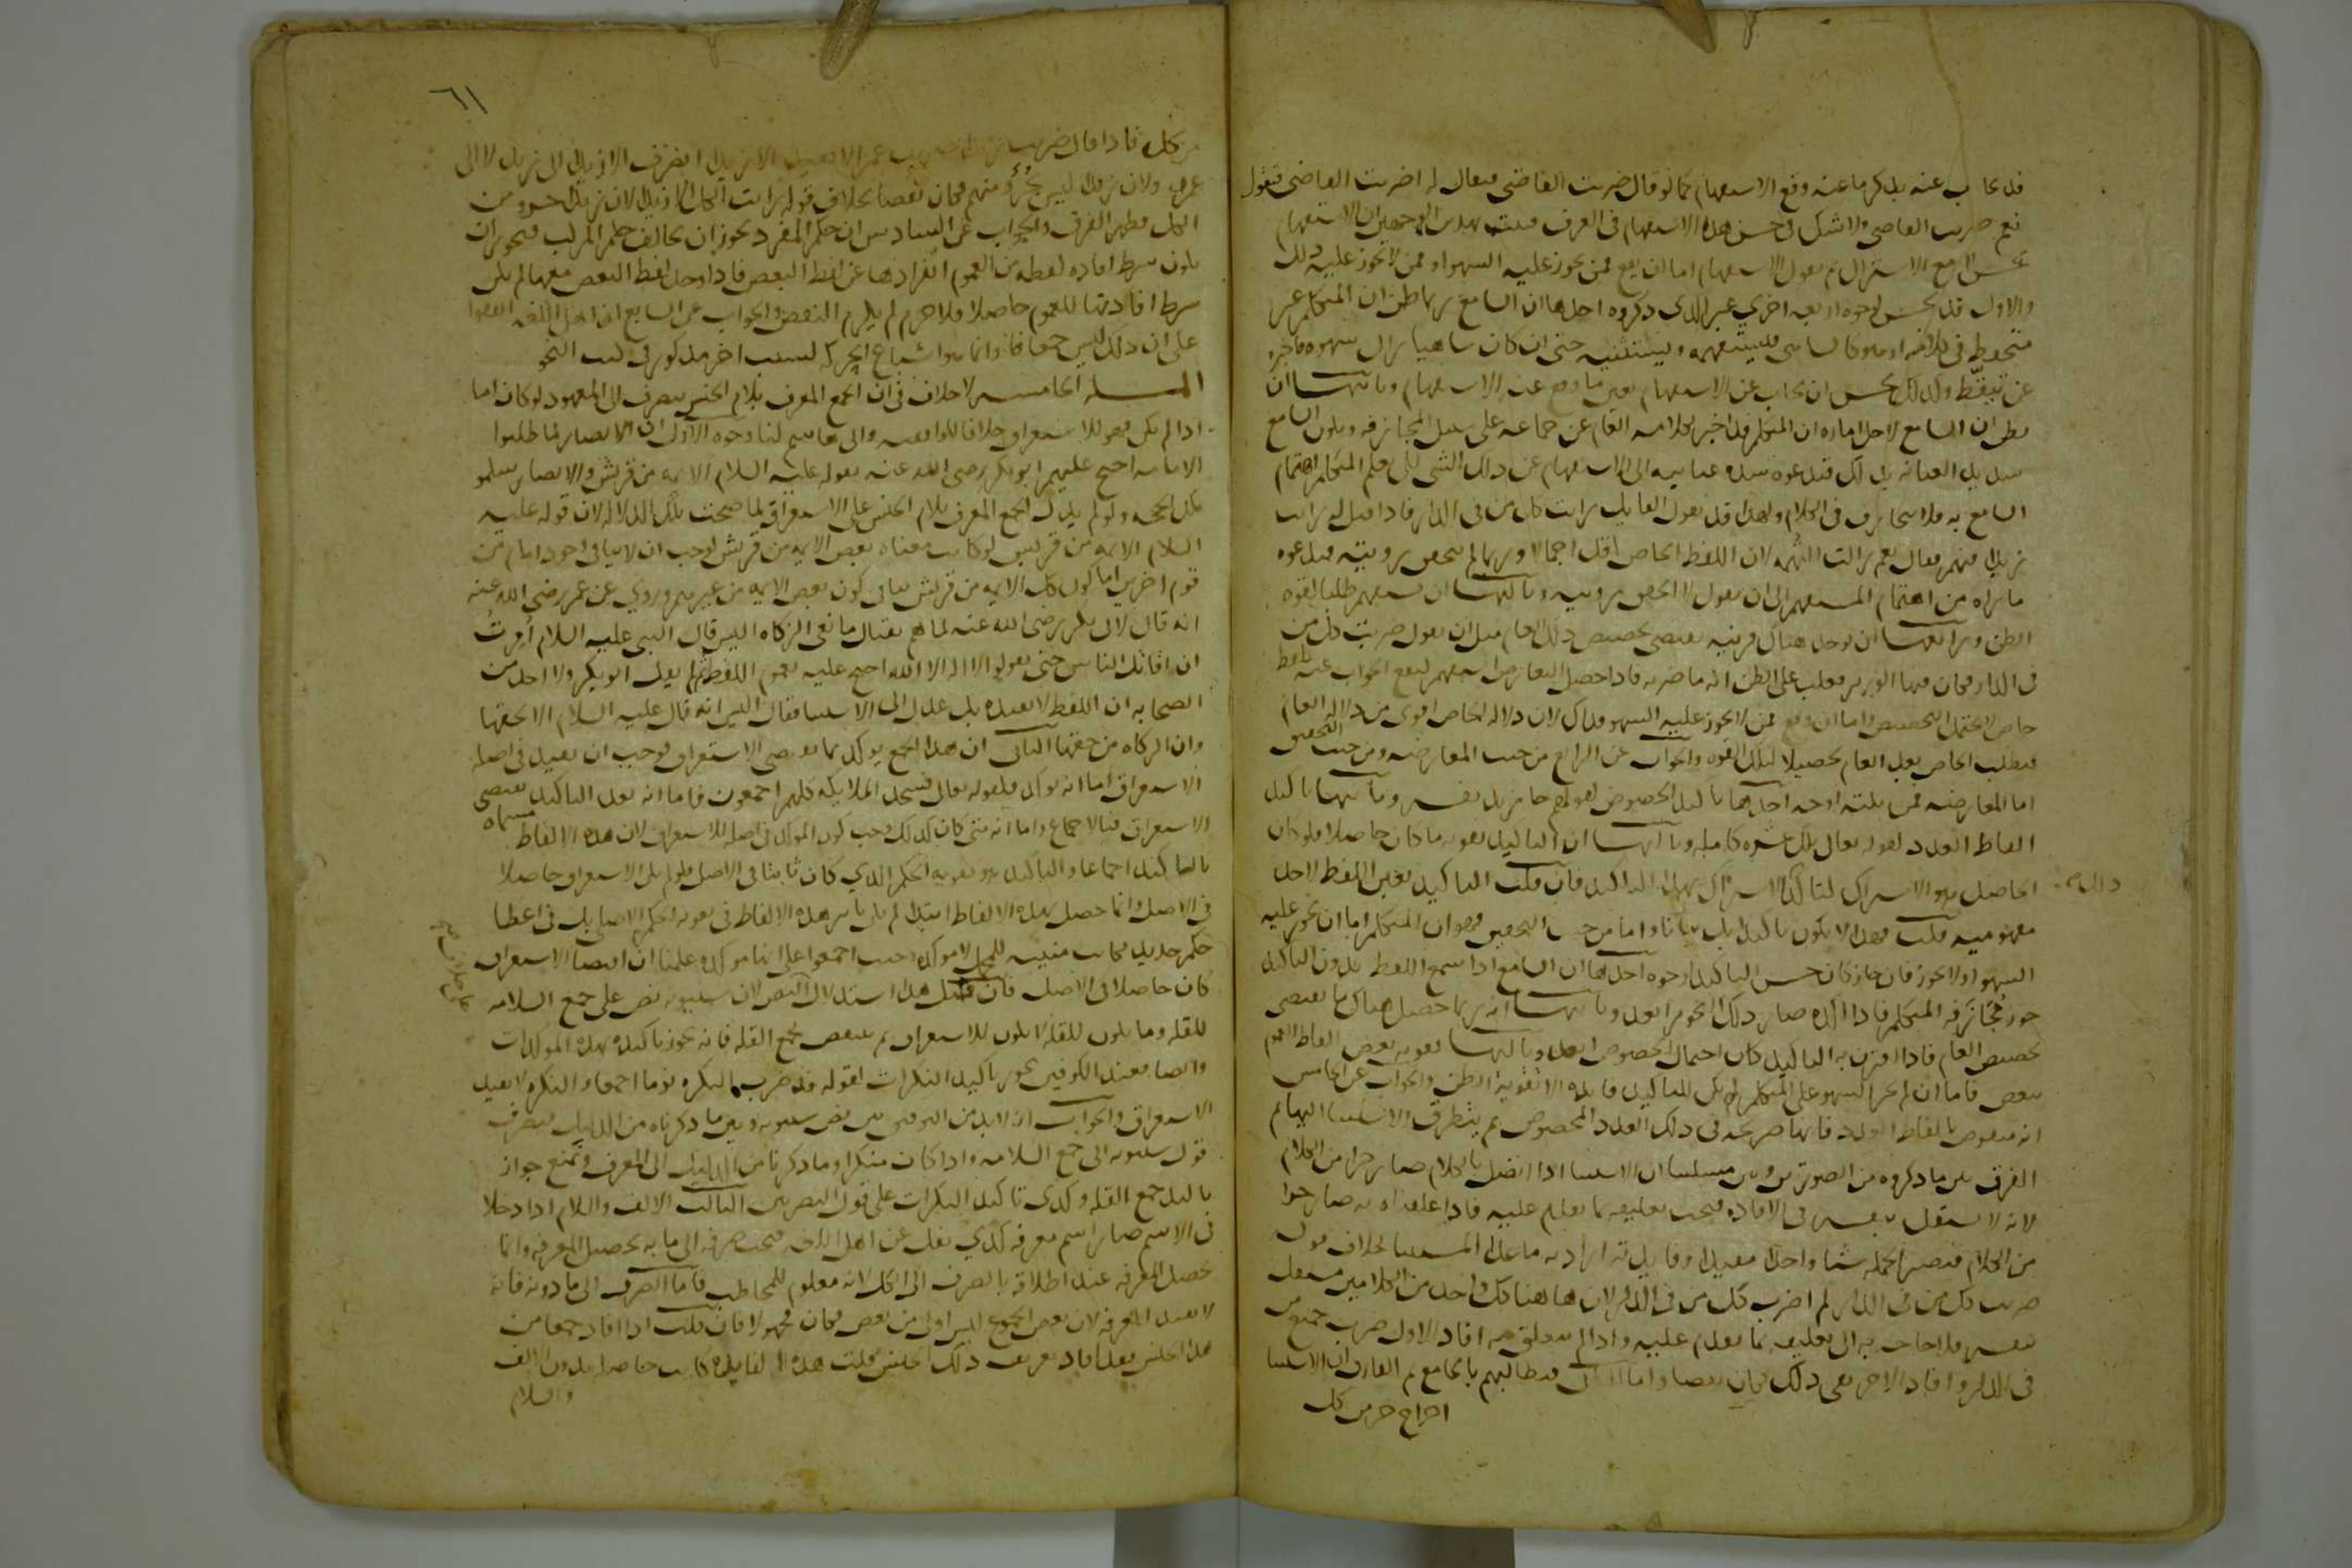 قد يجاب عنه بذكر ما عنه وقع الاستفهام كما لو قال ضربت القاضي فيقال له اضربت القاضي فيقول
نعم ضربت القاضي ولا شك في حسن هذا الاستفهام في العرف فثبت بهذين الوجهين ان الاستفهام
يحسن لا مع الاشتراك ثم نقول الاستفهام اما ان يقع ممن يجوز عليه السهو او ممن لا يجوز عليه ذلك
والاول قد يحسن لوجوه اربعة اخرى غير الذي ذكروه احدها ان السامع ربما ظن ان المتكلم غير
متحفظ في كلامه او هو كالساهي فيستفهمه ويستثبته حتى ان كان ساهيا زال سهوه فاخبره
عن تيقظ ولذلك يحسن ان يجاب عن الاستفهام بعين ما وقع عنه الاستفهام وثانيها ان
يظن ان السامع لاجل اماره ان المتكلم قد اخبر بكلامه العام عن جماعه على سبيل المجازفه ويكون السامع
شديد العنايه بذلك فتدعوه شده عنايته الى الاستفهام عن ذلك الشي لكي يعلم المتكلم اهتمام
السامع به فلا يجازف في الكلام ولهذا قد يقول القايل رايت كل من في الدار فاذا قيل له رايت
زيدا فيهم فقال نعم زالت التهمه لان اللفظ الخاص اقل اجمالا وربما لم يتحقق رويته فيدعوه
ما يراه من اهتمام المستفهم الى ان يقول لا اتحقق رويته وثالثها ان يستفهم طلبا لقوه
الظن ورابعها ان يوجد هناك قرينه يقتضي تخصيص ذلك العام مثل ان يقول ضربت كل من
في الدار فكان فيها الوزير فغلب على الظن انه ما ضربه فاذا حصل التعارض استفهم ليقع الجواب عنه بلفظ
خاص لا يحتمل التخصيص واما ان وقع ممن لا يجوز عليه السهو فذاك لان دلاله الخاص اقوى من دلاله العام
فيطلب الخاص بعد العام تحصيلا لتلك القوه والجواب عن الرابع من حيث المعارضه ومن حيث التحقيق
اما المعارضه فمن ثلثه اوجه احدها تاكيد الخصوص كقولهم جا زيد نفسه وثانيها تاكيد
الفاظ العدد كقوله تعالى تلك عشره كامله وثالثها ان التاكيد تقويه ما كان حاصلا فلو كان
الحاصل هو الاشتراك لتاكد الاشتراك بهذا التاكيد فان قلت التاكيد يعين اللفظ لاحد
مفهوميه قلت فهذا لا يكون تاكيدا بل بيانا واما من حيث التحقيق فهو ان المتكلم اما ان يجوز عليه
السهو او لا يجوز فان جاز كان حسن التاكيد لوجوه احدها ان السامع اذا سمع اللفظ بدون التاكيد
جوز مجازفه المتكلم فاذا اكده صار ذلك التجويز ابعد وثانيها انه ربما حصل هناك ما يقتضي
تخصيص العام فاذا اقترن به التاكيد كان احتمال الخصوص ابعد وثالثها تقويه بعض الفاظ العموم
ببعض فاما ان لم يجز السهو على المتكلم لم يكن للتاكيد فايده الا تقويه الظن والجواب عن الخامس
انه منقوض بالفاظ العدد فانها صريحه في ذلك العدد المخصوص ثم يتطرق الاستثنا اليها ثم
الفرق بين ما ذكروه من الصورتين وبين مسئلتنا ان الاستثنا اذا اتصل بالكلام صار جزا من الكلام
لانه لا يستقل بنفسه في الافاده فيجب تعليقه بما تقدم عليه فاذا علقناه به صار جزا
من الكلام فتصير الجمله شيا واحدا مفيدا وفايدته اراده ما عدا المستثنى بخلاف قوله
ضربت كل من في الدار لم اضرب كل من في الدار لان هاهنا كل واحد من الكلامين مستقل
بنفسه فلا حاجه به الى تعليقه بما تقدم عليه واذا لم يتعلق به افاد الاول ضرب جميع من
في الدار وافاد الاخر نفي ذلك فكان نقضا واما فنطالبهم بالجامع ثم الفارق ان الاستثنا
اخراج جز من كل
ذلك
٦١
من كل فاذا قال ضربت الا زيدا انصرف الا زيدا الى زيد لا الى
عمرو ولان زيدا ليس بجزو منهم فكان نقضا بخلاف قوله رايت الكل الا زيدا لان زيدا جزو من
الكل فظهر الفرق والجواب عن السادس ان حكم المفرد يجوز ان يخالف حكم المركب فيجوز ان
يكون شرط افاده لفظه من العموم انفرادها عن لفظ البعض فاذا دخل لفظ البعض معها لم يكن
شرط افادتها للعموم حاصلا فلا جرم لم يلزم النقض والجواب عن السابع ان اهل اللغه اتفقوا
على ان ذلك ليس جمعا فانما هو اشباع الحركه لسبب اخر مذكور في كتب النحو
المسله الخامسه لا خلاف في ان الجمع المعرف بلام الجنس ينصرف الى المعهود لو كان اما
اذا لم يكن فهو للاستغراق خلافا للواقفيه وابي هاشم لنا وجوه الاول ان الانصار لما طلبوا
الامامه احتج عليهم ابو بكر رضي الله عنه بقوله عليه السلام الايمه من قريش والانصار سلموا
تلك الحجه ولو لم يدل الجمع المعرف بلام الجنس على الاستغراق لما صحت تلك الدلاله لان قوله عليه
السلام الايمه من قريش لو كان معناه بعض الايمه من قريش لوجب ان لا ينافي وجود امام من
قوم اخرين اما كون كل الايمه من قريش ينافي كون بعض الايمه من غيرهم وروي عن عمر رضي الله عنه
انه قال لابي بكر رضي الله عنه لما هم بقتال مانعي الزكاه اليس قال النبي عليه السلام امرت
ان اقاتل الناس حتى يقولوا لا اله الا الله احتج عليه بعموم اللفظ ثم لم يقل ابو بكر ولا احد من
الصحابه ان اللفظ لا يفيده بل عدل الى الاستثنا فقال اليس انه قال عليه السلام الا بحقها
وان الزكاه من حقها الثاني ان هذا الجمع يوكد بما يقتضي الاستغراق فوجب ان يفيد في اصله
الاستغراق اما انه يوكد فلقوله تعالى فسجد الملايكه كلهم اجمعون واما انه بعد التاكيد يقتضي
الاستغراق فبالاجماع واما انه متى كان كذلك وجب كون الموكد في اصله للاستغراق لان هذه الالفاظ مسماه
بالتاكيد اجماعا والتاكيد هو تقويه الحكم الذي كان ثابتا في الاصل فلو لم يكن الاستغراق حاصلا
في الاصل وانما حصل بهذه الالفاظ ابتدا لم يكن تاثير هذه الالفاظ في تقويه الحكم الاصلي بل في اعطا
حكم جديد فكانت مبينه للمجمل لا موكده وحيث اجمعوا على انها موكده علمنا ان اقتضا الاستغراق
كان حاصلا في الاصل فان قيل هذا استدلال النص لان سيبويه نص على جمع السلامه
للقله وما يكون للقله لا يكون للاستغراق ثم ينقص بجمع القله فانه يجوز تاكيده بهذه الموكدات
وايضا فعند الكوفيين يجوز تاكيد النكرات لقوله قد صرت البكره يوما اجمعا والنكره لا تفيد
الاستغراق والجواب انه لا بد من التوفيق بين نص سيبويه وبين ما ذكرناه من الدليل فنصرف
قول سيبويه الى جمع السلامه واذا كان منكرا وما ذكرنا من الدليل الى المعرف ونمنع جواز
تاكيد جمع القله وكذى تاكيد النكرات على قول البصريين الثالث الالف واللام اذا دخلا
في الاسم صار اسم معرفه كذي نقل عن اهل اللغه فيجب صرفه الى ما به تحصيل المعرفه وانما
تحصل المعرفه عند اطلاقه بالصرف الى الكل لانه معلوم للمخاطب فاما الصرف الى ما دونه فانه
لا يفيد المعرفه لان بعض الجموع ليس اولى من بعض فكان مجهولا فان قلت اذا افاد جمعا من
هذا الجنس فقد افاد تعريف ذلك الجنس قلت هذه الفايده كانت حاصله بدون الالف
والسلام